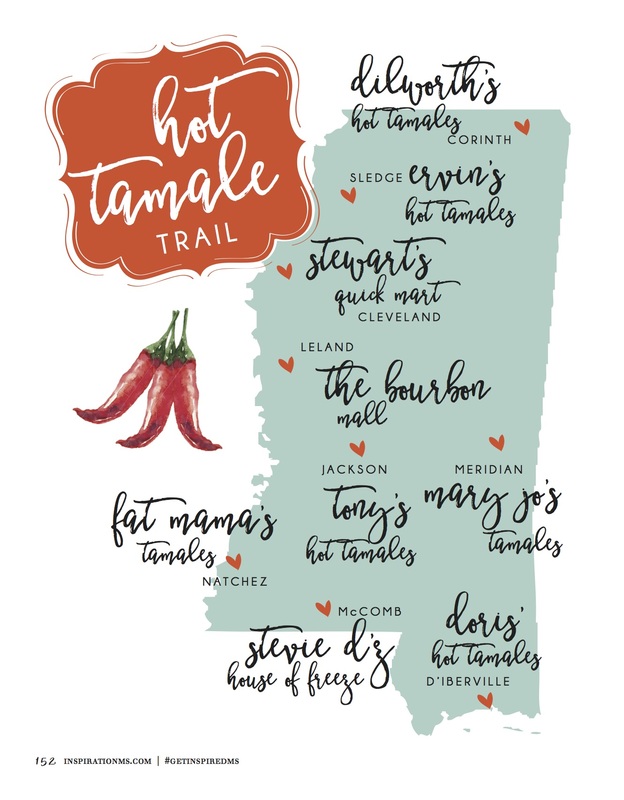 hot
tamale
TRAIL
dilworth's
hot tamales
CORINTH
SLEDGE ervin's
hot tamales
stewart's
quick mart
CLEVELAND
LELAND
the bourbon
mall
JACKSON
tony's
hot tamales
MERIDIAN
mary jo's
tamales
fat mama's
tamales
NATCHEZ
McCOMB
stevie d'z
house of freeze
doris'
hot tamales
D'IBERVILLE
152 INSPIRATIONMS.COM | #GETINSPIREDMS